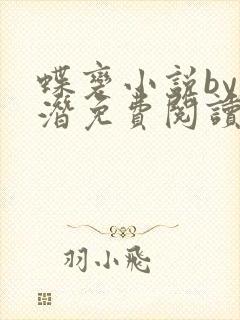 蝶变小说by
潜免费阅读
羽小飛